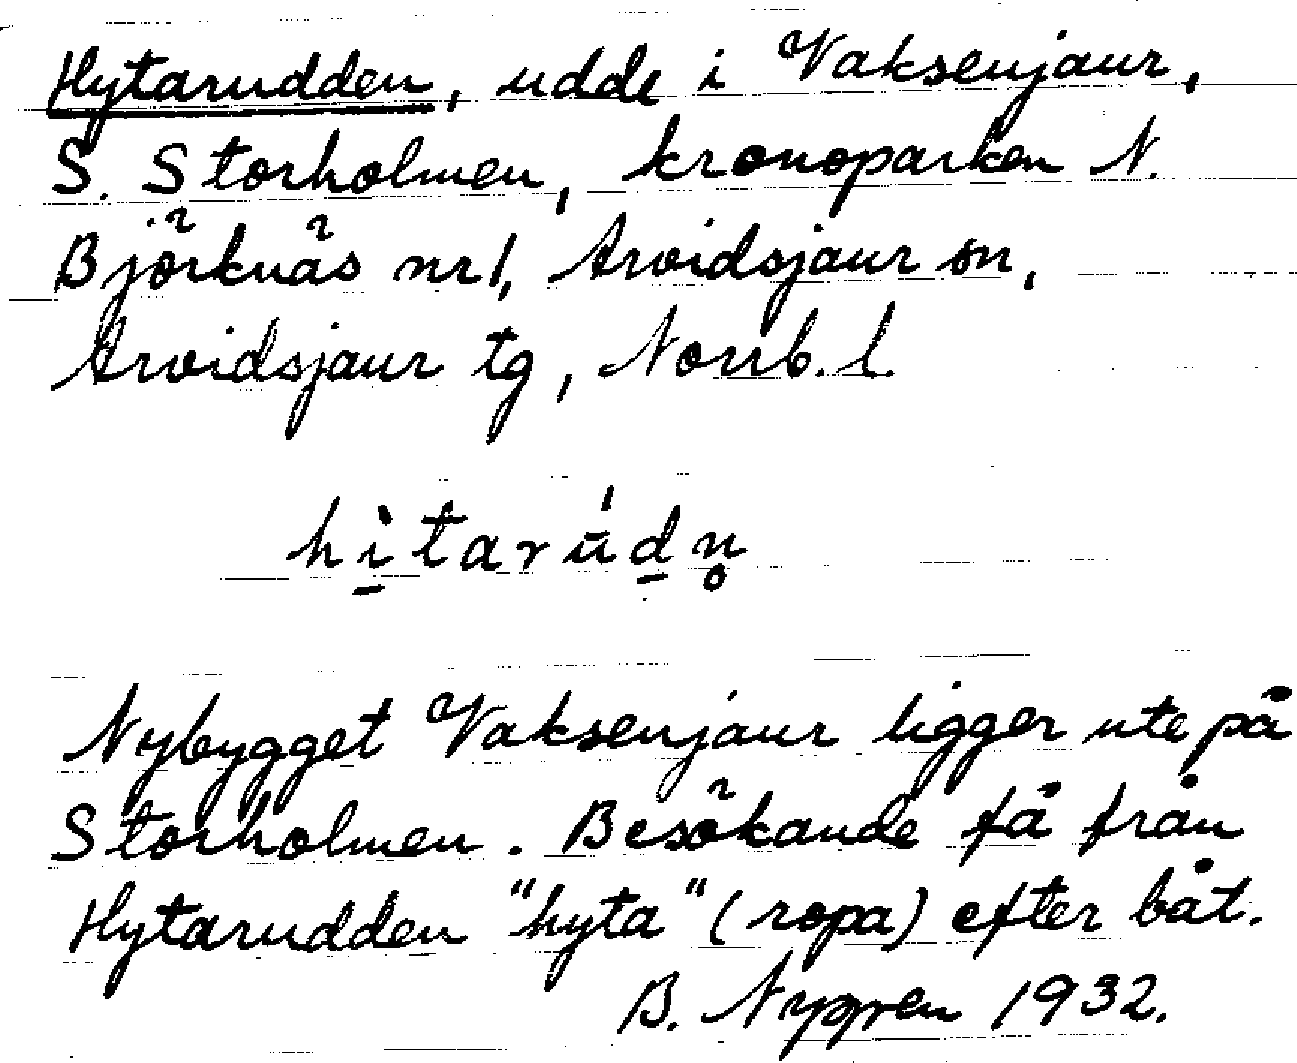 Hytarudden, udde i Vaksenjaur,
S. Storholmen, kronoparken N.
Björknäs nr 1, Arvidsjaur sn,
Arvidsjaur tg, Norrb. l.
hi̱tarúḏn̥
Nybygget Vaksenjaur ligger ute på
Storholmen. Besökande få från
Hytarudden "hyta" (ropa) efter båt.
B. Nygren 1932.